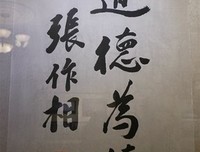 道德為
張作相